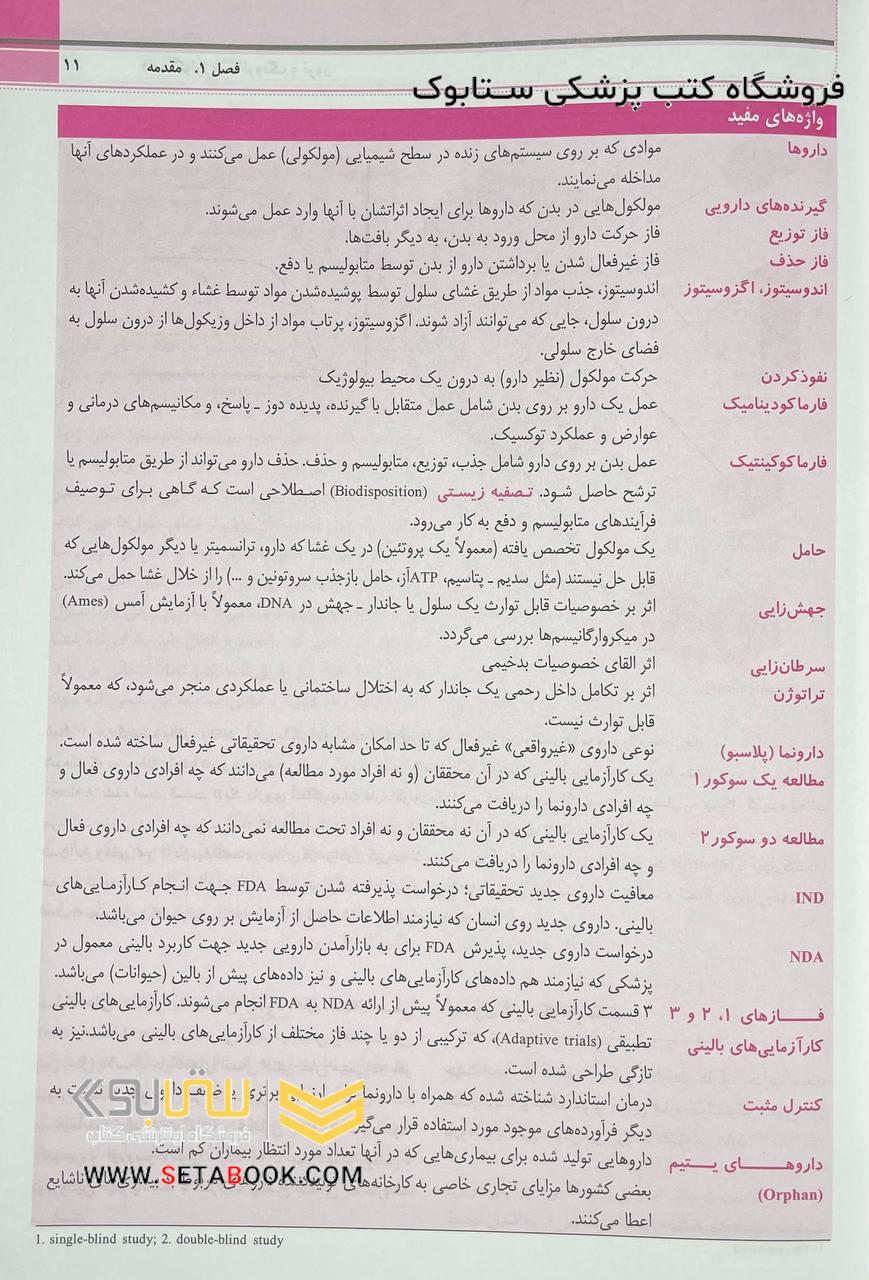 فصل ۱. مقدمه ۱۱
فروشگاه کتب پزشکی ستابوک
واژه‌های مفید
داروها موادی که بر روی سیستم‌های زنده در سطح شیمیایی (مولکولی) عمل می‌کنند و در عملکردهای آنها
مداخله می‌نمایند.
گیرنده‌های دارویی مولکول‌هایی در بدن که داروها برای ایجاد اثراتشان با آنها وارد عمل می‌شوند.
فاز توزیع فاز حرکت دارو از محل ورود به بدن، به دیگر بافت‌ها.
فاز حذف فاز غیرفعال شدن یا برداشتن دارو از بدن توسط متابولیسم یا دفع.
اندوسیتوز، اگزوسیتوز اندوسیتوز، جذب مواد از طریق غشای سلول توسط پوشیده‌شدن مواد توسط غشاء و کشیده‌شدن آنها به
درون سلول، جایی که می‌توانند آزاد شوند. اگزوسیتوز، پرتاب مواد از داخل وزیکول‌ها از درون سلول به
فضای خارج سلولی.
نفوذکردن حرکت مولکول (نظیر دارو) به درون یک محیط بیولوژیک
فارماکودینامیک عمل یک دارو بر روی بدن شامل عمل متقابل با گیرنده، پدیده دوز ـ پاسخ، و مکانیسم‌های درمانی و
عوارض و عملکرد توکسیک.
فارماکوکینتیک عمل بدن بر روی دارو شامل جذب، توزیع، متابولیسم و حذف. حذف دارو می‌تواند از طریق متابولیسم یا
ترشح حاصل شود. تصفیه زیستی (Biodisposition) اصطلاحی است که گاهی برای توصیف
فرآیندهای متابولیسم و دفع به کار می‌رود.
حامل یک مولکول تخصص یافته (معمولاً یک پروتئین) در یک غشا که دارو، ترانسمیتر یا دیگر مولکول‌هایی که
قابل حل نیستند (مثل سدیم ـ پتاسیم، ATPآز، حامل بازجذب سروتونین و ...) را از خلال غشا حمل می‌کند.
جهش‌زایی اثر بر خصوصیات قابل توارث یک سلول یا جاندار ـ جهش در DNA، معمولاً با آزمایش آمس (Ames)
در میکروارگانیسم‌ها بررسی می‌گردد.
سرطان‌زایی اثر القای خصوصیات بدخیمی
تراتوژن اثر بر تکامل داخل رحمی یک جاندار که به اختلال ساختمانی یا عملکردی منجر می‌شود، که معمولاً
قابل توارث نیست.
دارونما (پلاسبو) نوعی داروی «غیرواقعی» غیرفعال که تا حد امکان مشابه داروی تحقیقاتی غیرفعال ساخته شده است.
مطالعه یک سوکور۱ یک کارآزمایی بالینی که در آن محققان (و نه افراد مورد مطالعه) می‌دانند که چه افرادی داروی فعال و
چه افرادی دارونما را دریافت می‌کنند.
مطالعه دو سوکور۲ یک کارآزمایی بالینی که در آن نه محققان و نه افراد تحت مطالعه نمی‌دانند که چه افرادی داروی فعال
و چه افرادی دارونما را دریافت می‌کنند.
IND معافیت داروی جدید تحقیقاتی؛ درخواست پذیرفته شدن توسط FDA جهت انجام کارآزمایی‌های
بالینی. داروی جدید روی انسان که نیازمند اطلاعات حاصل از آزمایش بر روی حیوان می‌باشد.
NDA درخواست داروی جدید، پذیرش FDA برای به بازارآمدن دارویی جدید جهت کاربرد بالینی معمول در
پزشکی که نیازمند هم داده‌های کارآزمایی‌های بالینی و نیز داده‌های پیش از بالین (حیوانات) می‌باشد.
فازهای ۱، ۲ و ۳ ۳ قسمت کارآزمایی بالینی که معمولاً پیش از ارائه NDA به FDA انجام می‌شوند. کارآزمایی‌های بالینی
کارآزمایی‌های بالینی تطبیقی (Adaptive trials)، که ترکیبی از دو یا چند فاز مختلف از کارآزمایی‌های بالینی می‌باشد.نیز به
تازگی طراحی شده است.
کنترل مثبت درمان استاندارد شناخته شده که همراه با دارونما برای ارزیابی برتری یا ضعف داروی جدید نسبت به
دیگر فرآورده‌های موجود مورد استفاده قرار می‌گیرد
داروهای یتیم داروهایی تولید شده برای بیماری‌هایی که در آنها تعداد مورد انتظار بیماران کم است.
(Orphan) بعضی کشورها مزایای تجاری خاصی به کارخانه‌های تولیدکننده ناشایع
اعطا می‌کنند.
ستابوک
فروشگاه اینترنتی کتاب
WWW.SETABOOK.COM
1. single-blind study; 2. double-blind study